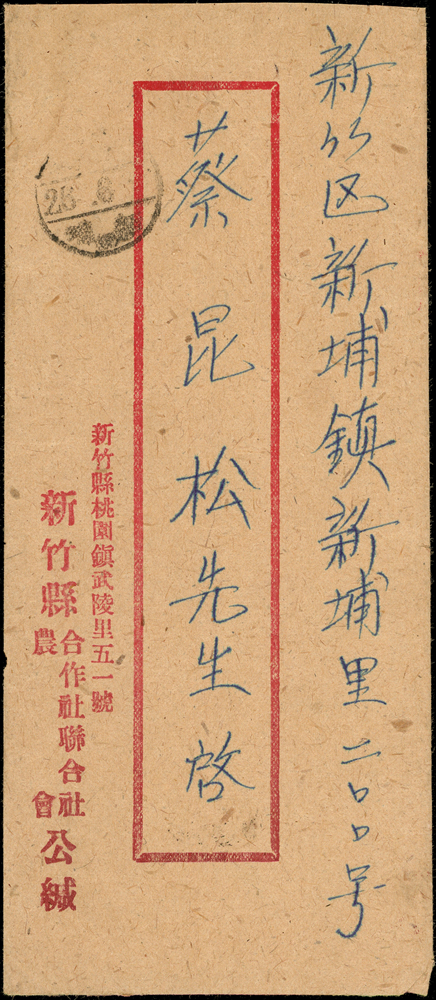 新竹区新埔鎮新埔里二〇〇号
蔡昆松先生啓
新竹縣桃園鎮武陵里五一號
新竹縣合作社聯合社公緘
農會
28.6